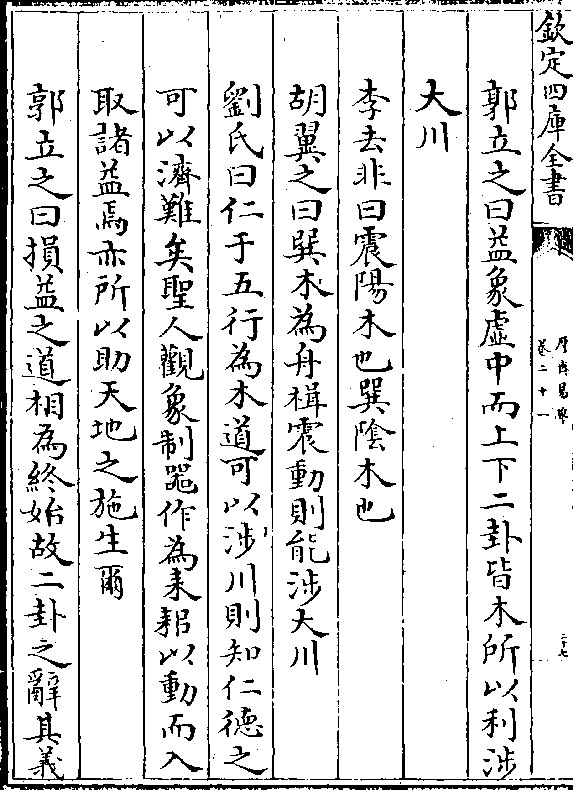 欽定四庫全書
厚齋易學
卷二十一
二十七
郭立之曰益象虛中而上下二卦皆木所以利涉
大川
李去非曰震陽木也巽陰木也
胡翼之曰巽木為舟楫震動則能涉大川
劉氏曰仁于五行為木道可以涉川則知仁德之
可以濟難矣聖人觀象制器作為耒耜以動而入
取諸益焉亦所以助天地之施生爾
郭立之曰損益之道相為終始故二卦之辭其義